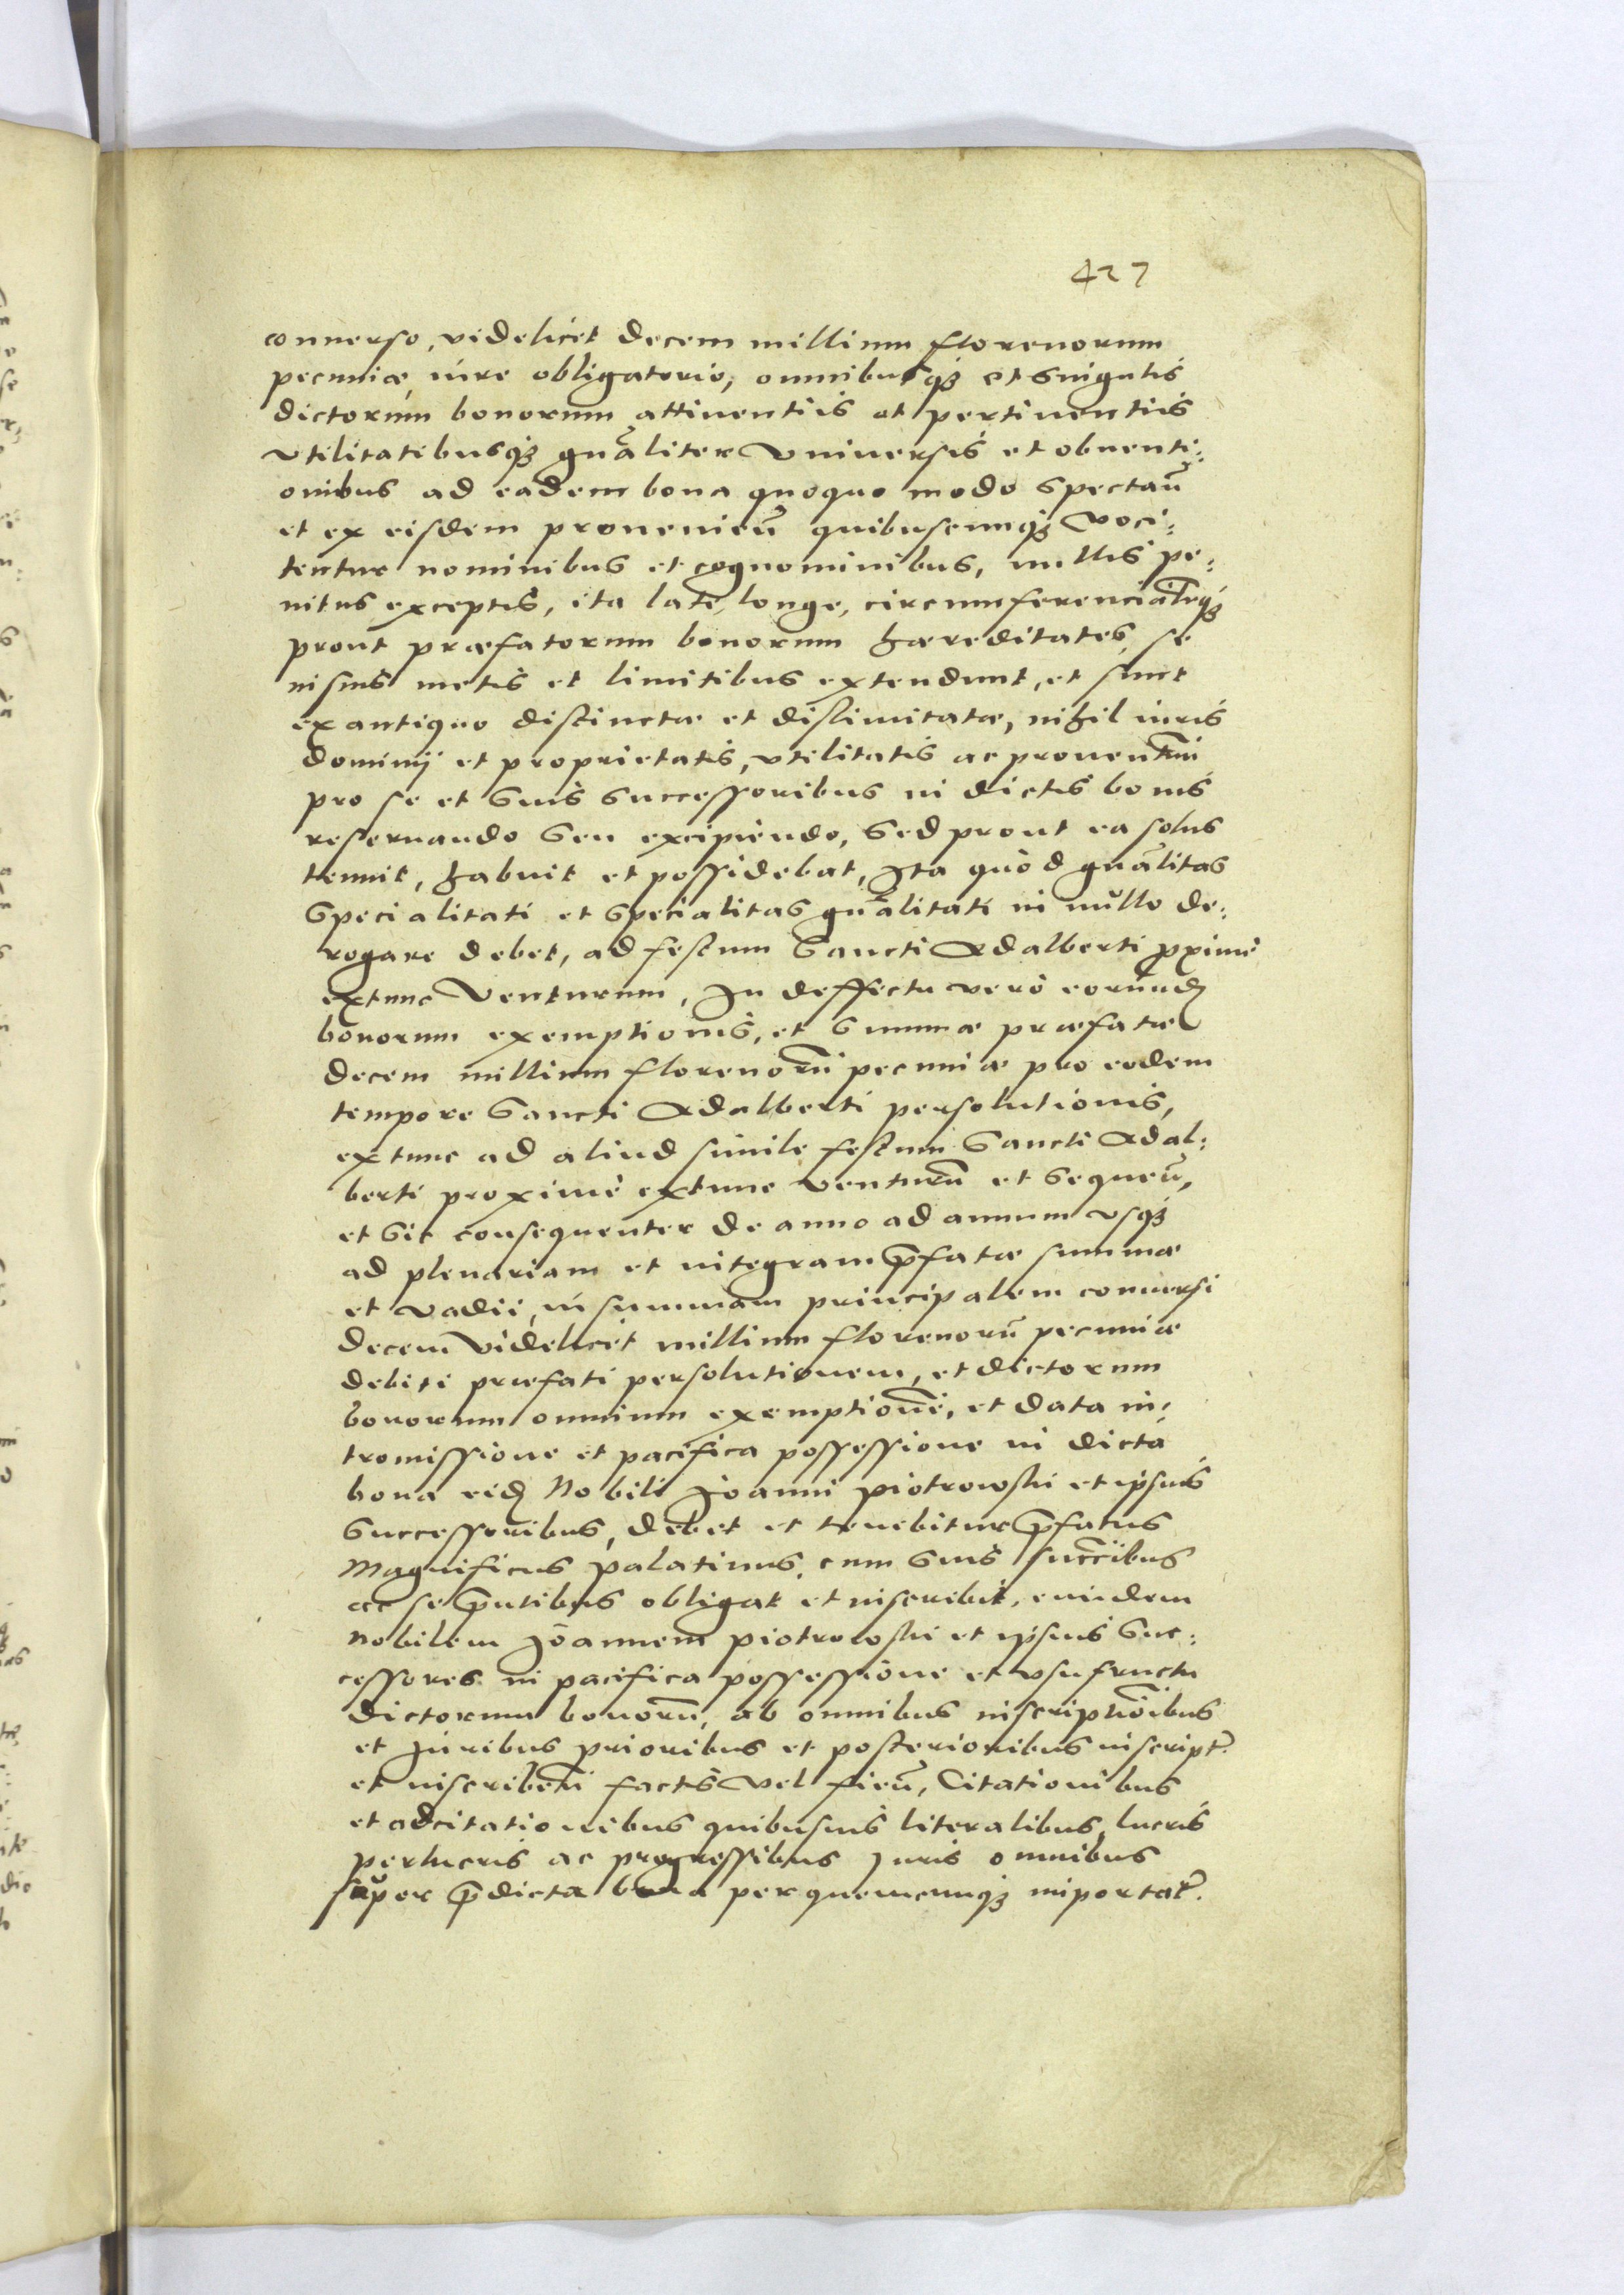 427
conuerso, videlicet decem millium florenorum
pecuniæ, iure obligatorio, omnibusqȝ et singulis
dictorum bonorum attinentiis et pertinentiis
vtilitatibusqȝ gnãliter vniuersis et obuenti:
onibus ad eadem bona quoquo modo spectañ
et ex eisdem prouenieñ quibuscunqȝ voci:
tentur nominibus et cognominibus, nullis pe:
nitus exceptis, ita late, longe, circumferencialr̃qȝ
prout præfatorum bonorum hæreditates, se
in suis metis et limitibus extendunt, et sunt
ex antiquo distinctæ et dislimitatæ, nihil iuris
dominij et proprietatis, vtilitatis ac prouentuũ
pro se et suis successoribus in dictis bonis
reseruando seu excipiendo, sed prout ea solus
tenuit, habuit et possidebat, Ita quòd gnãlitas
specialitati et specialitas gnãlitati in nullo de:
rogare debet, ad festum Sancti Adalberti pximè
extunc venturum, In deffectu verò eorundẽ
bonorum exemptionis, et summæ præfatæ
decem millium florenorũ pecuniæ pro eodem
tempore Sancti Adalberti persolutionis,
extunc ad aliud simile festum Sancti Adal:
berti proximè extunc venturũ et sequeñ,
et sic consequenter de anno ad annum vsqȝ
ad plenariam et integram p̃fatæ summæ
et vadii, in summam principalem conuersi
decem videlicet millium florenorũ pecuniæ
debiti præfati persolutionem, et dictorum
bonorum omnium exemptionẽ, et data in:
tromissione et pacifica possessione in dicta
bona eidẽ Nobili Joanni Piotrowski et ipsius
successoribus, debet et tenebitur p̃fatus
Magnificus Palatinus, cum suis succr̃ibus
ac se p̃ntibus obligat et inscribit, eundem
Nobilem Joannem Piotrowski et ipsius suc:
cessores in pacifica possessione et vsufructu
dictorum bonorũ, ab omnibus inscriptiõibus
et Juribus prioribus et posterioribus inscript.
et inscribeñ factis vel fieñ, Citationibus
et adcitationibus quibusuis literalibus, lucris
perlucris ac progressibus Juris omnibus
super p̃dicta bona per quemcunqȝ importat.